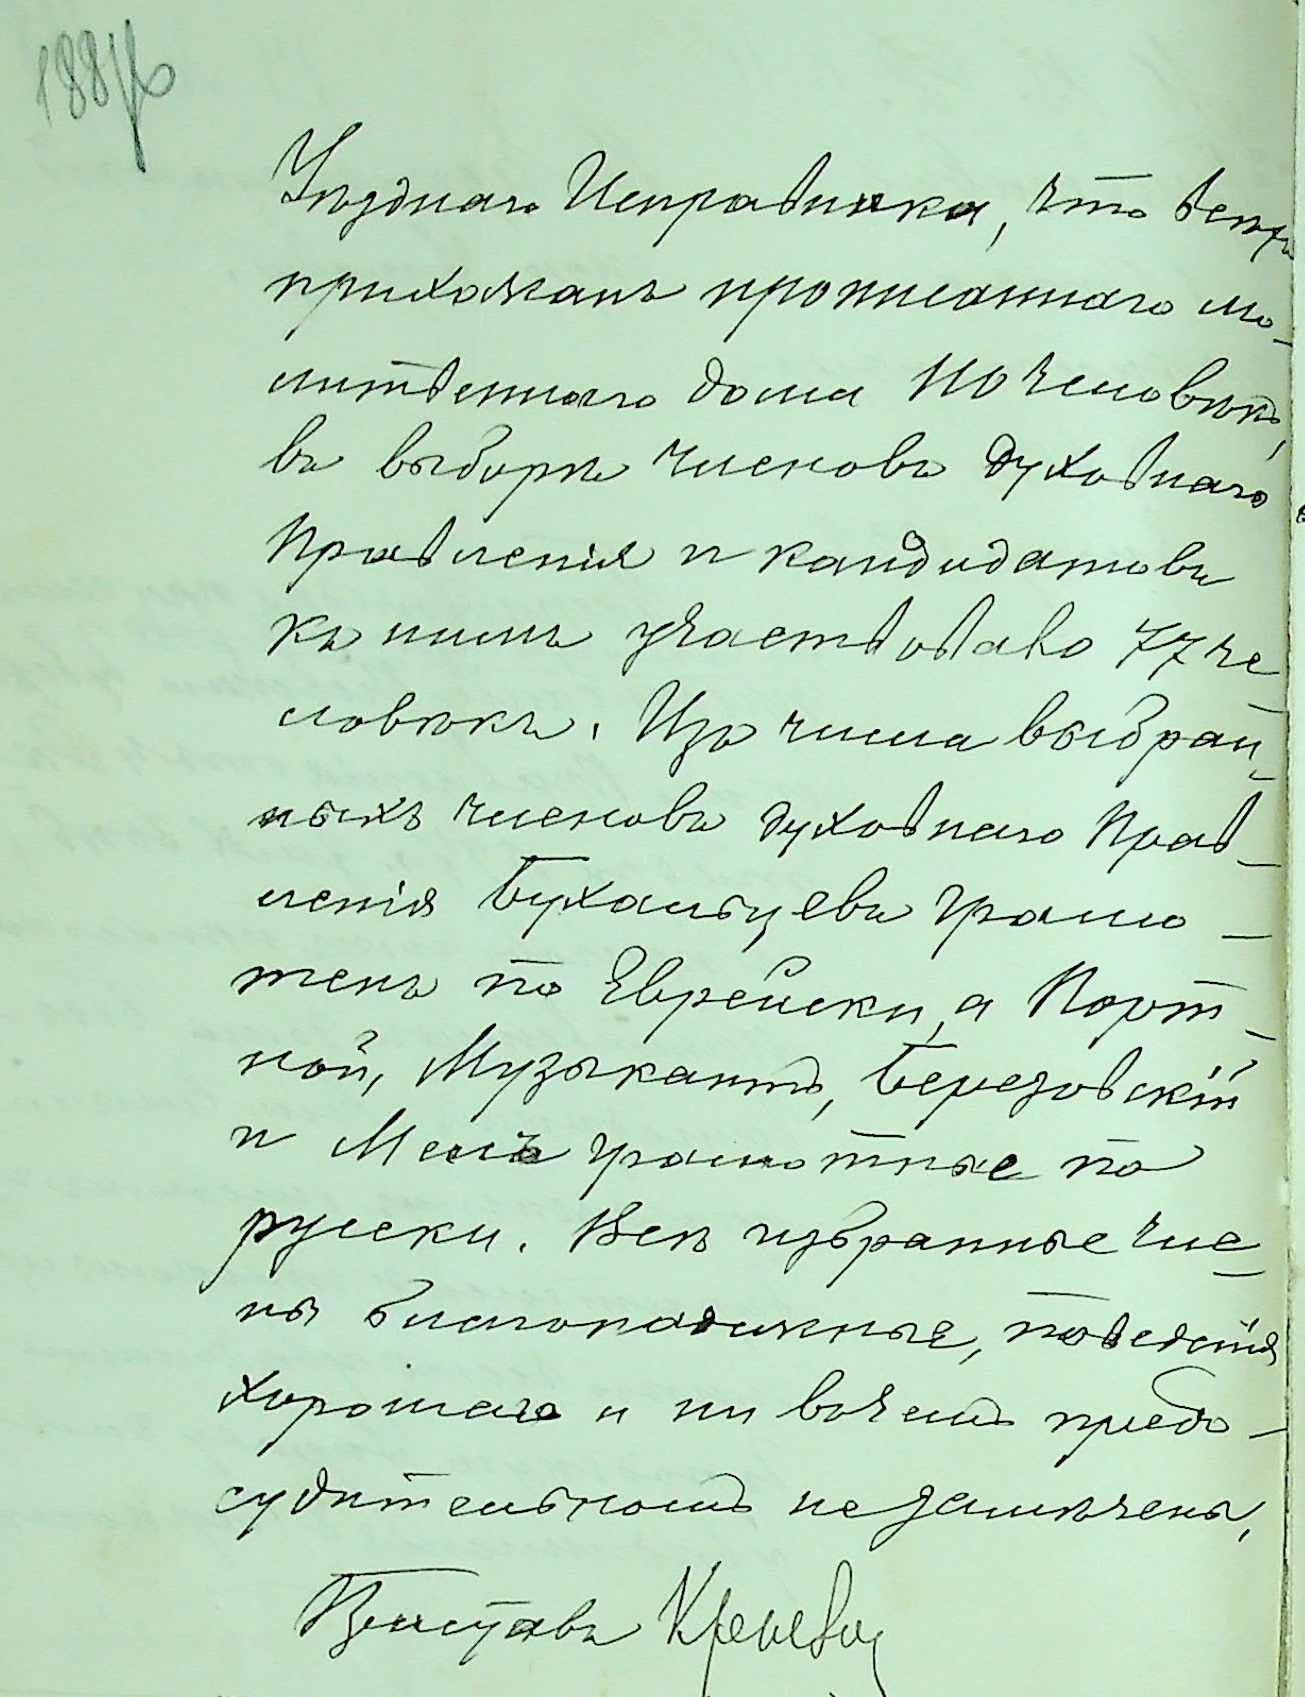 Уѣзднаго Исправника, что всѣхъ
прихожанъ прописаннаго мо-
литвеннаго дома 110 человѣкъ,
въ выборѣ членовъ Духовнаго
Правленія и кандидатовъ
къ нимъ участвовало 77 че-
ловѣкъ. Изъ числа выбран-
ныхъ членовъ Духовнаго Прав-
ленія Бухальцевъ грамо-
тенъ по Еврейски, а Порт-
ной, Музыкантъ, Березовскій
и Мель грамотные по
русски. Всѣ избранные чле-
ны благонадежные, поведенія
хорошаго и ни вочемъ предо-
судительномъ не замѣчены,
Приставъ